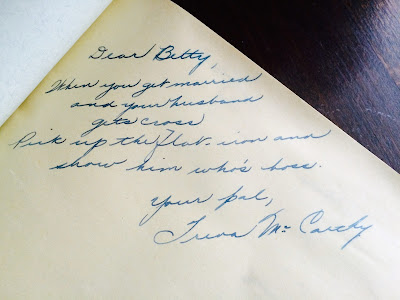 Dear Betty,
When you get married
and your husband
gets cross
Pick up the flat-iron and
show him who's boss.
Your pal,
Treva Mc Carthy